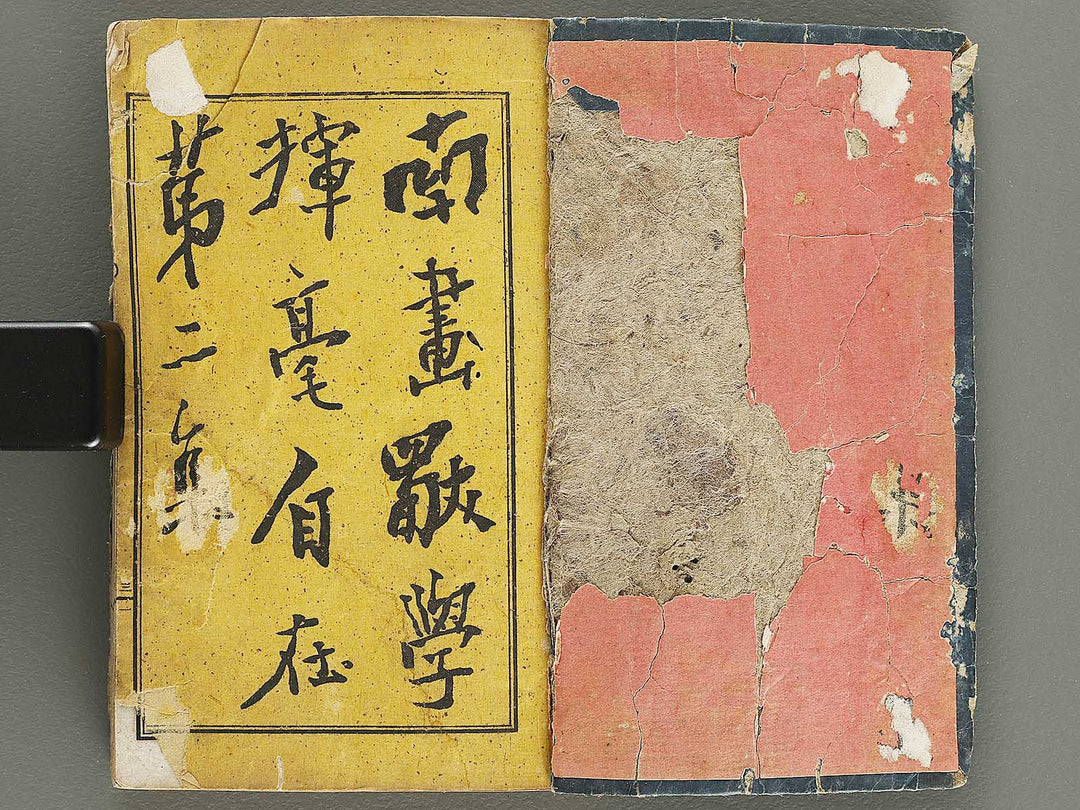 南畫獨學
揮毫自在
第二集